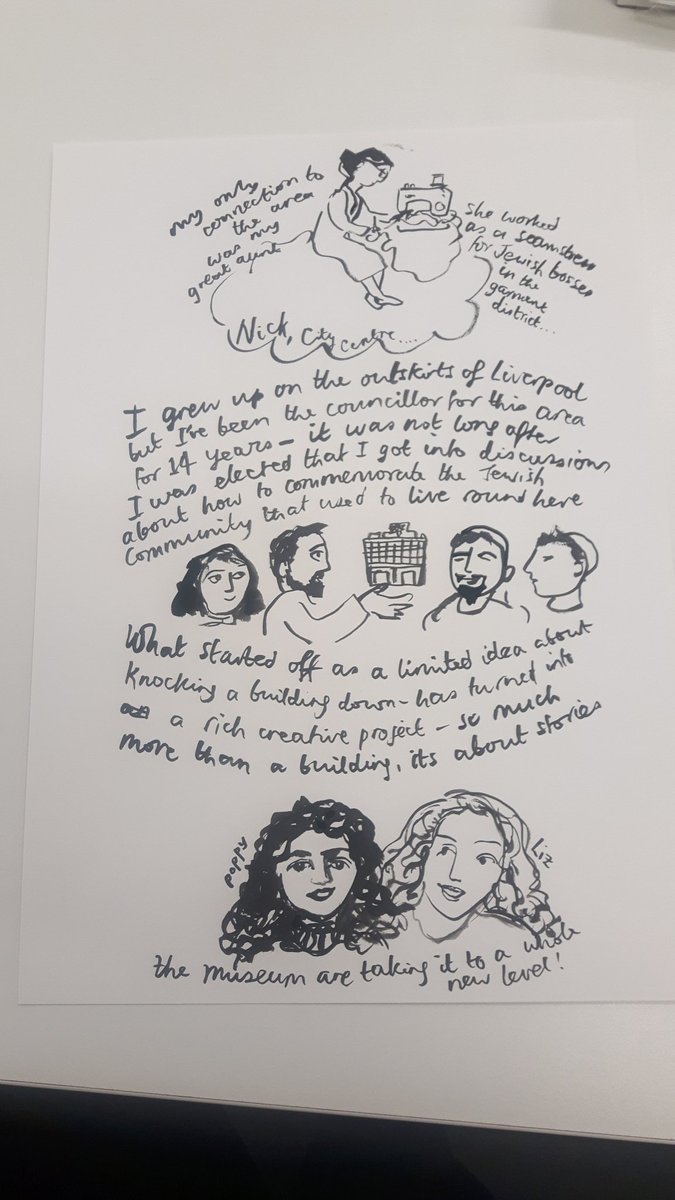 my only
connection to
the area
was my
great aunt
She worked
as a seamstress
for Jewish bosses
in the
garment
district...
Nick, City Centre....
I grew up on the outskirts of Liverpool
but I've been the councillor for this area
for 14 years - it was not long after
I was elected that I got into discussions
about how to commemorate the Jewish
Community that used to live round here
What started off as a limited idea about
knocking a building down - has turned into
a rich creative project - so much
more than a building, its about stories
poppy
Liz
the museum are taking it to a whole
new level!